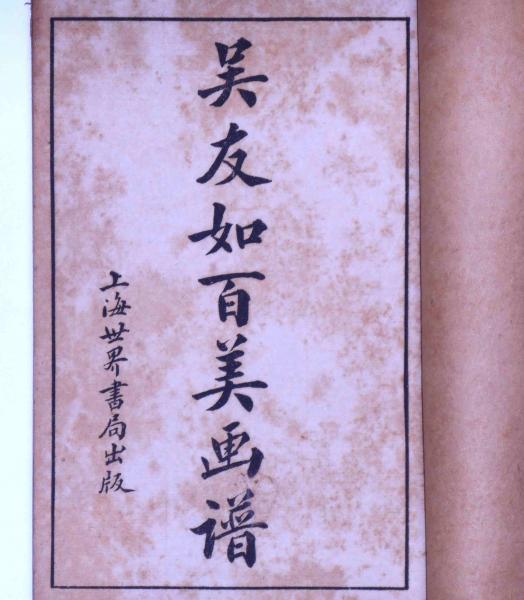 吴友如百美画谱
上海世界書局出版